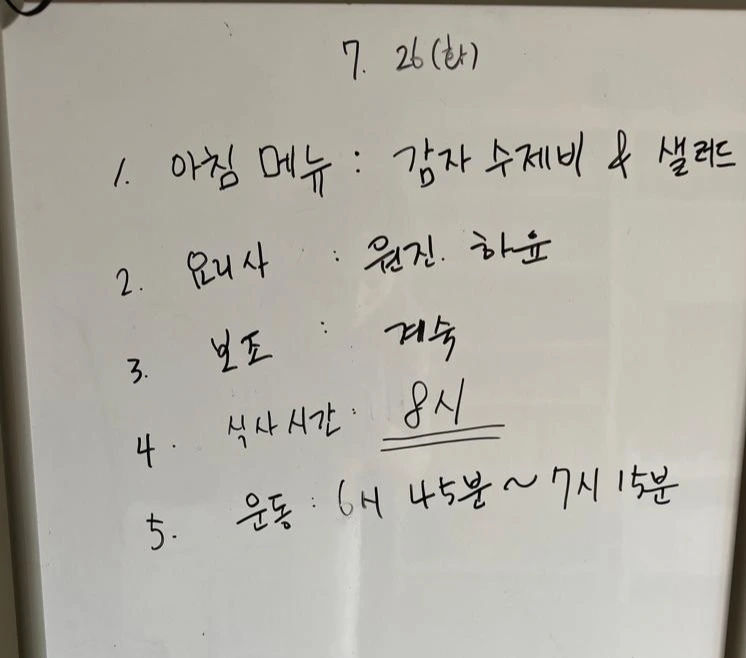 7. 26(화)
1. 아침 메뉴 : 감자 수제비 & 샐러드
2. 요리사 : 원진. 하윤
3. 보조 : 계숙
4. 식사시간 : 8시
5. 운동 : 6시 45분 ~ 7시 15분